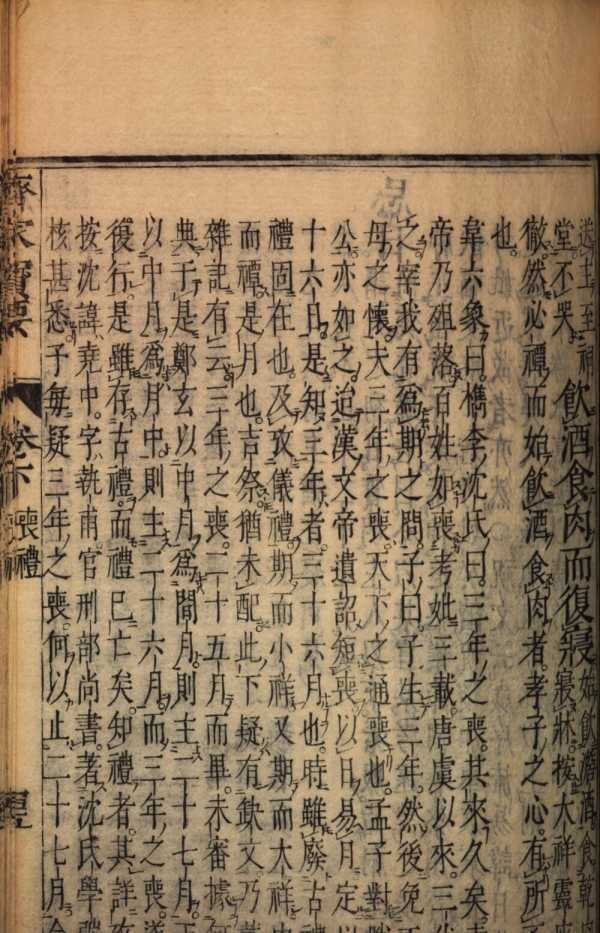 堂不哭
飲酒食肉而復寢
始飲醴酒食乾
寢牀按大祥靈座
徹然必禫而始飲酒食肉者孝子之心有所
也
韋六象曰檇李沈氏曰三年之喪其來久矣
帝乃殂落百姓如喪考妣三載唐虞以來三
之宰我有為期之問子曰子生三年然後免
母之懷夫三年之喪天下之通喪也孟子對
公亦如之迨漢文帝遺詔短喪以日易月定
十六日是知三年者三十六月也時雖廢古
禮固在也及攷儀禮期而小祥又期而大祥中
而禫是月也吉祭猶未配此下疑有缺文乃
雜記有云三年之喪二十五月而畢未審據
典于是鄭玄以中月為間月則主二十七月
以中月為月中則主二十六月而三年之喪
後行是雖存古禮而禮已亡矣知禮者其詳
按沈諱堯中字執甫官刑部尚書著沈氏學
核甚悉予每疑三年之喪何以止二十七月
齊家寶要
卷下
喪禮